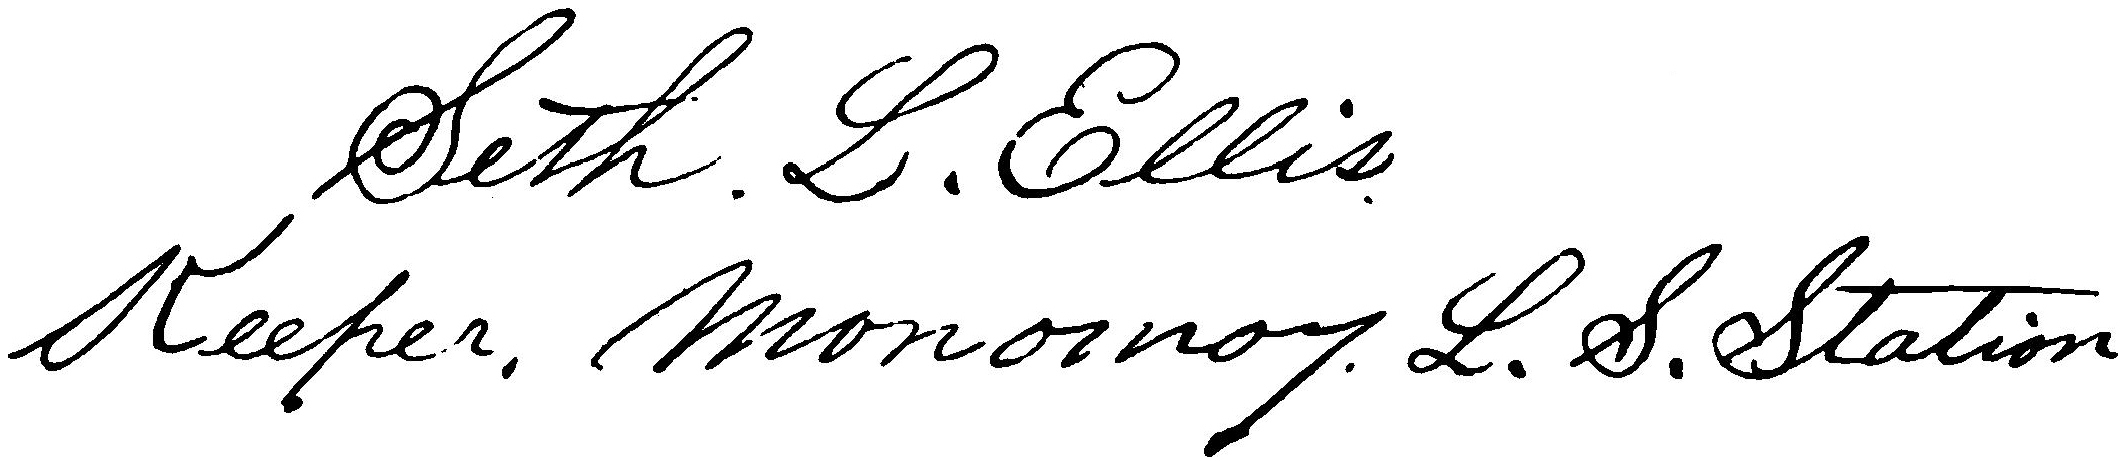 Seth. L. Ellis.
Keeper, Monomoy. L. S. Station